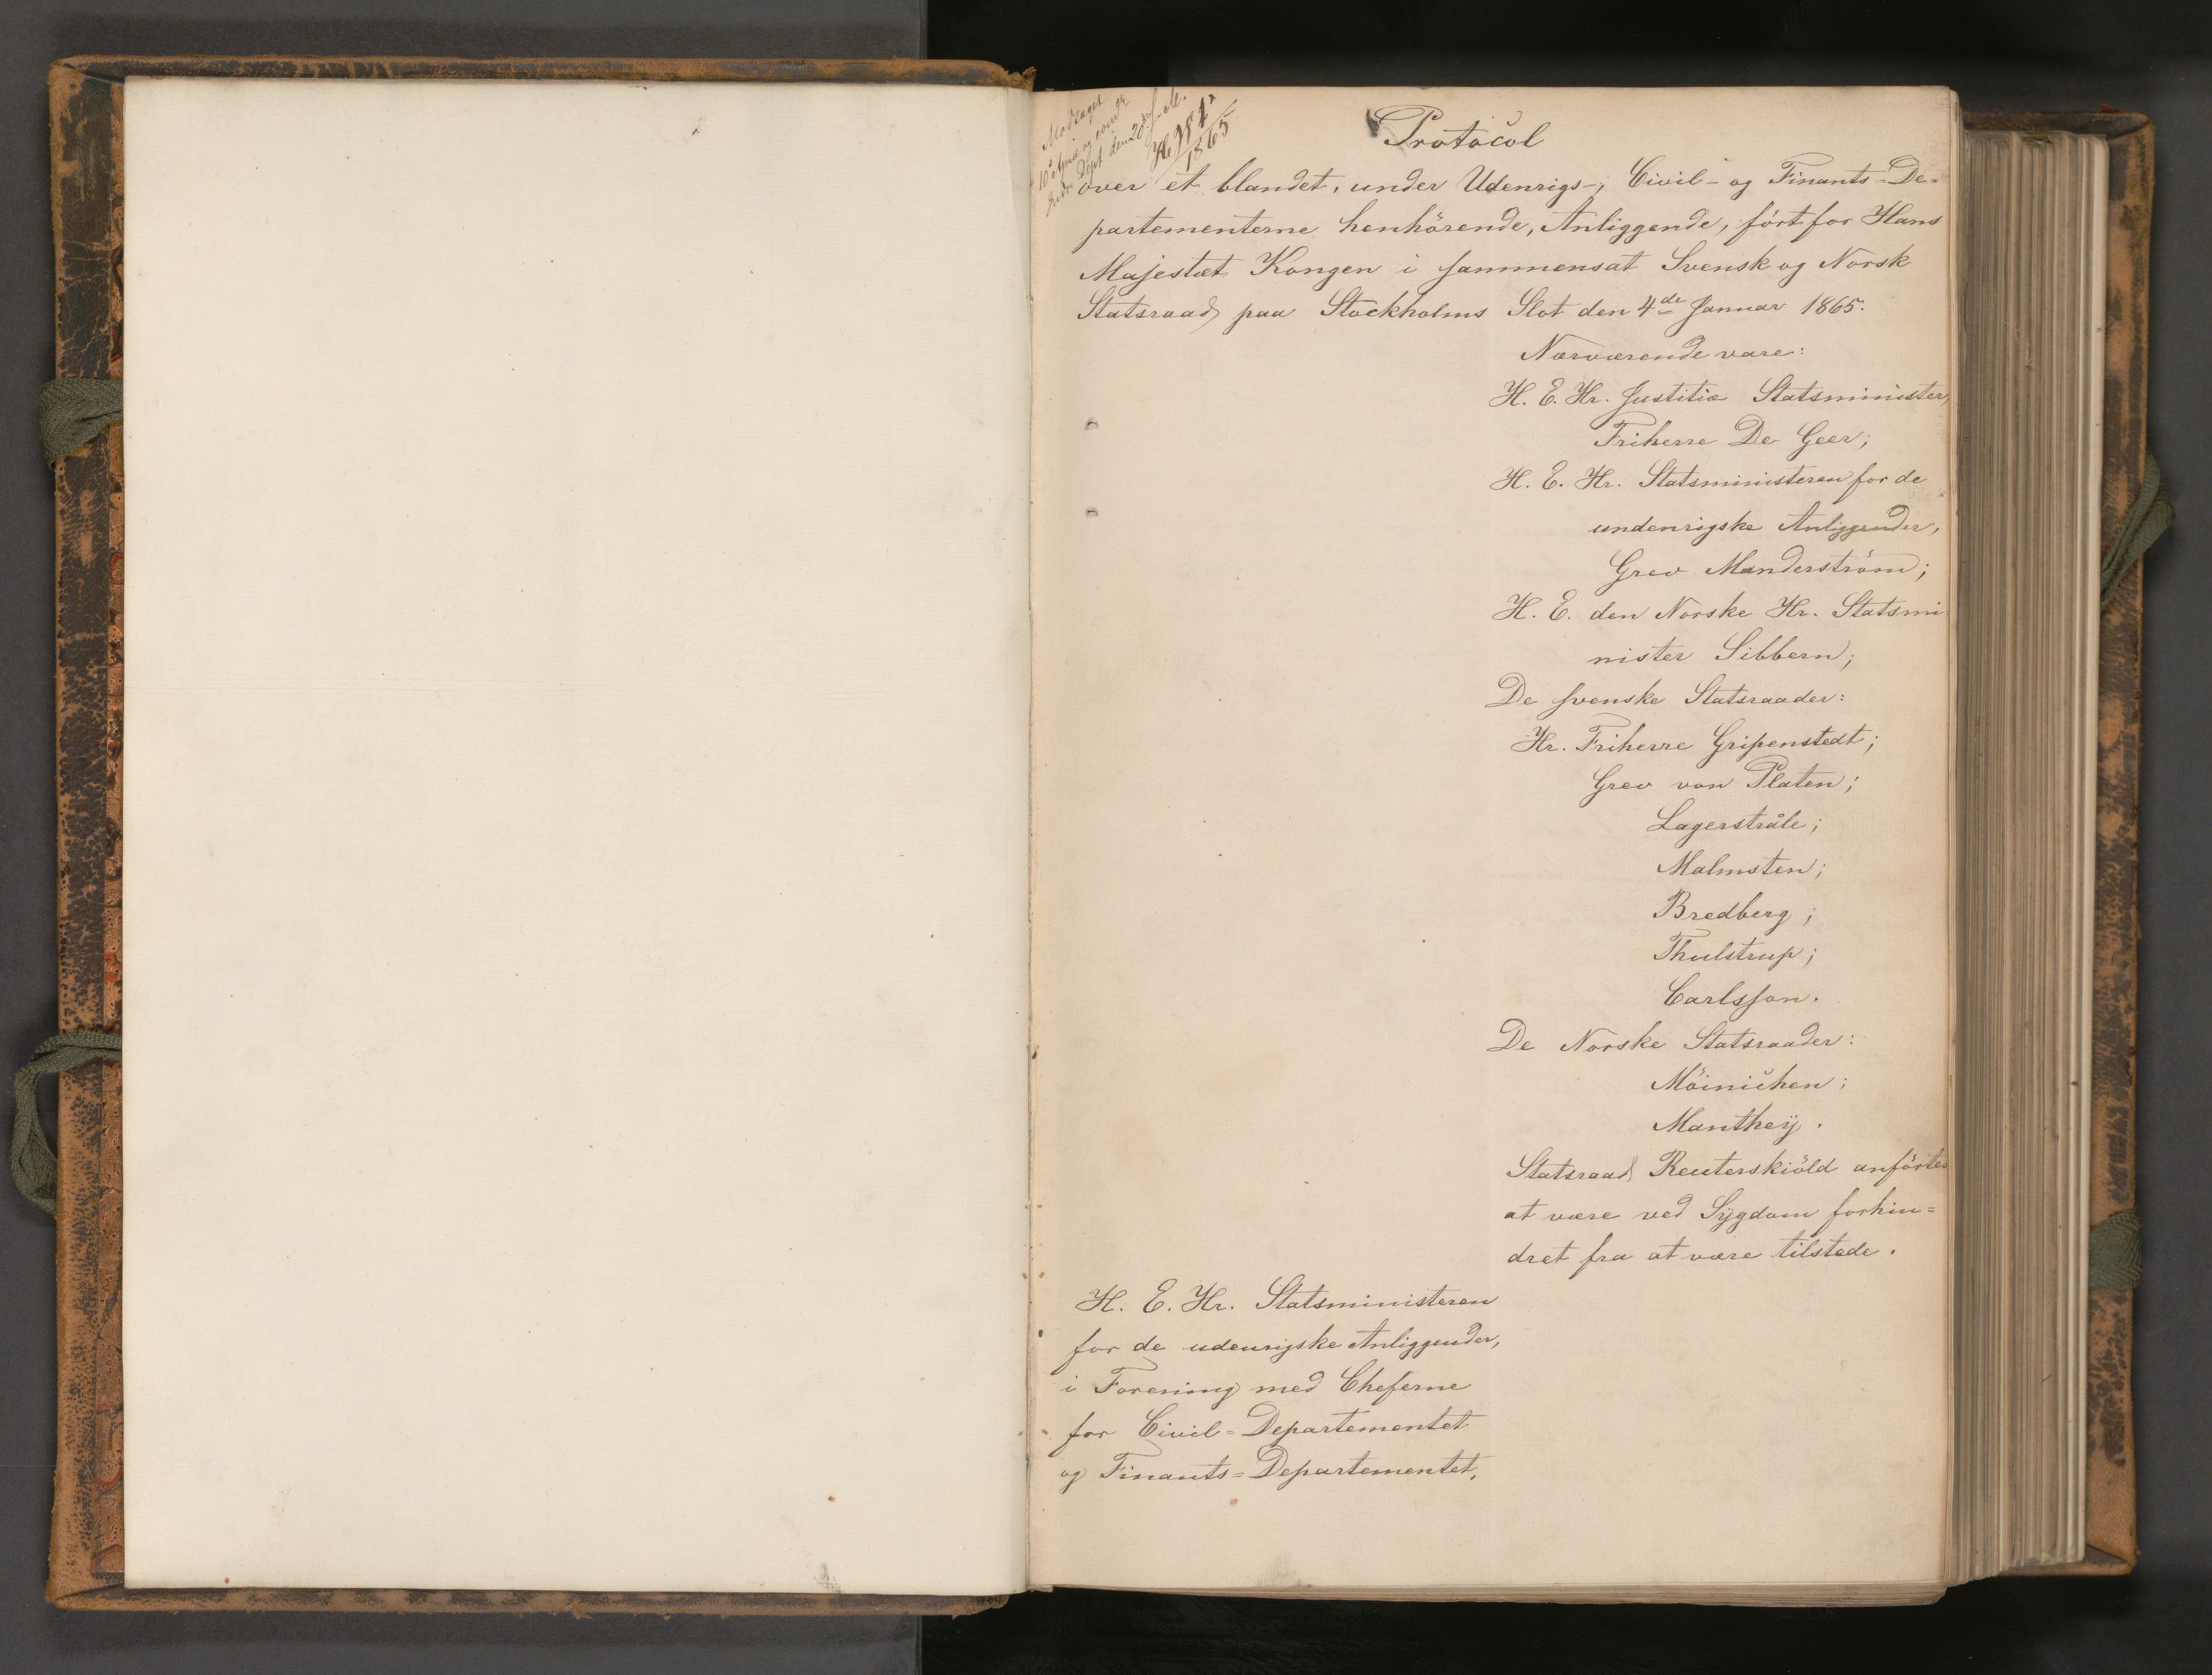 Modtaget
den 20de
1865
Protocol
over et blandet, under Udenrigs-, Civil- og Finants-De-
partementerne henhörende, Anliggende, fört for Hans
Majestæt Kongen i sammensat Svensk og Norsk
Statsraad paa Stockholms Slot den 4de Januar 1865.
Nærværende vare:
H. E. Hr. Justitiæ Statsminister,
Friherre De Geer;
H. E. Hr. Statsministeren for de
undenrigske Anliggender,
Grev Manderström;
H. E. den Norske Hr. Statsmi-
nister Sibbern;
De svenske Statsraader:
Hr. Friherre Gripenstedt;
Grev von Platen;
Lagerstråle;
Malmsten;
Bredberg;
Thulstrup;
Carlsson.
De Norske Statsraader:
Möinichen;
Manthey.
Statsraad Reuterskiöld anförtes
at være ved Sygdom forhin-
dret fra at være tilstede.
H. E. Hr. Statsministeren
for de udenrigske Anliggender,
i Forening med Cheferne
for Civil-Departementet
og Finants-Departementet,